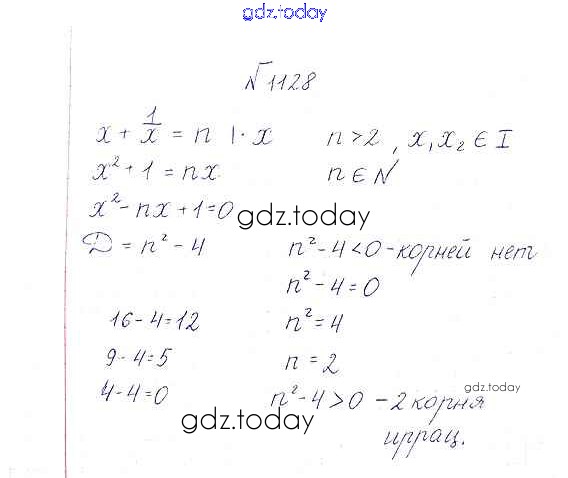 gdz.today
№1128
x + 1/x = n | · x   n > 2 , x₁ x₂ ∈ I
x² + 1 = nx   n ∈ N
x² - nx + 1 = 0
gdz.today
D = n² - 4   n² - 4 < 0 - корней нет
n² - 4 = 0
16 - 4 = 12   n² = 4
9 - 4 = 5   n = 2
gdz.today
4 - 4 = 0   n² - 4 > 0 - 2 корня
gdz.today
иррац.